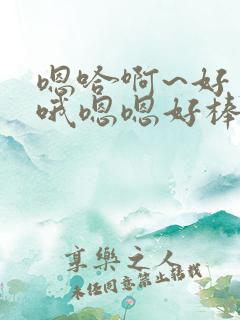 嗯哈啊~好
哦嗯嗯好棒
享樂之人
未经同意禁止转载